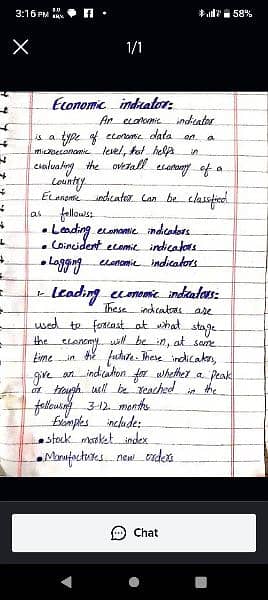 3:16 PM
58%
1/1
Economic indicator:
An economic indicator
is a type of economic data on a
microeconomic level, that helps in
evaluating the overall economy of a
country.
Economic indicator can be classified
as follows:
• Leading economic indicators
• Coincident ecomic indicators
• Lagging economic indicators
1- Leading economic indicators:
These indicators are
used to forcast at what stage
the economy will be in, at some
time in the future. These indicators,
give an indication for whether a peak
or trough will be reached in the
following 3-12 months.
Examples include:
• stock market index
• Manufactures new orders
Chat